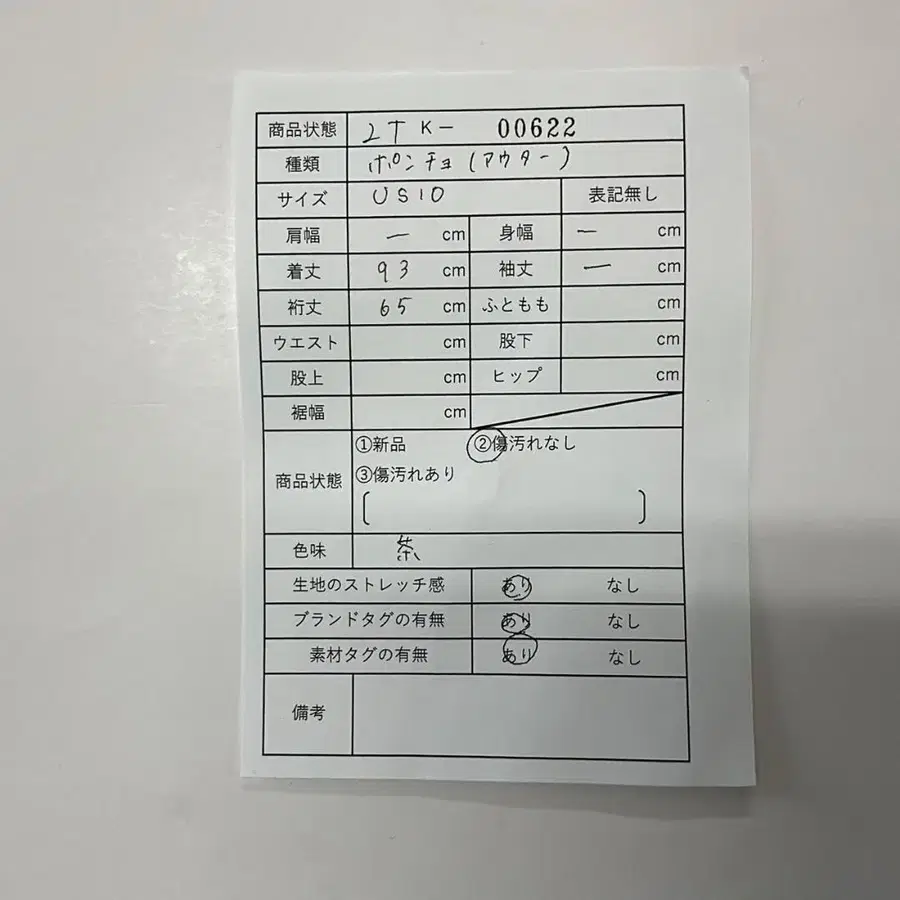 商品状態 2T K- 00622
種類 ポンチョ(アウター)
サイズ US10 表記無し
肩幅 ー cm 身幅 ー cm
着丈 93 cm 袖丈 ー cm
裄丈 65 cm ふともも cm
ウエスト cm 股下 cm
股上 cm ヒップ cm
裾幅 cm
商品状態 ①新品 ②傷汚れなし
③傷汚れあり
[ ]
色味 茶
生地のストレッチ感 あり なし
ブランドタグの有無 あり なし
素材タグの有無 あり なし
備考